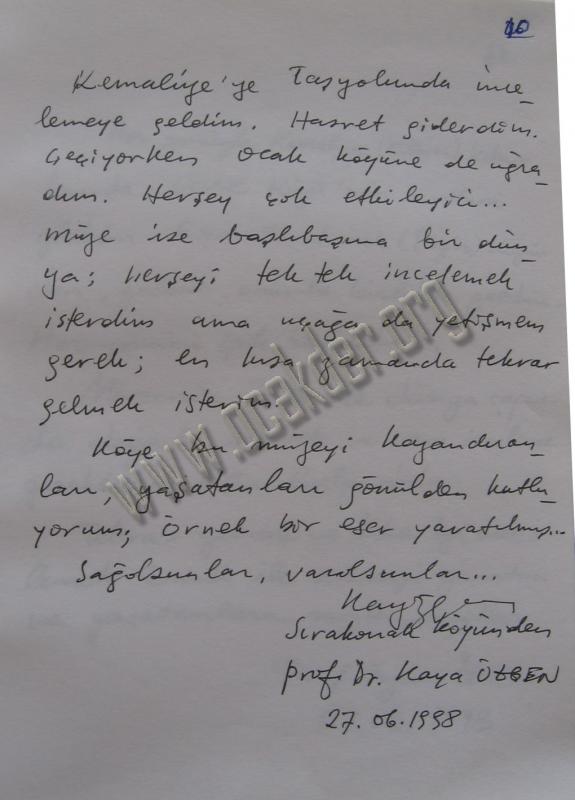 10
Kemaliye'ye Taşyolunda ince-
lemeye geldim. Hasret giderdim.
Geçiyorken Ocak köyüne de uğra-
dım. Herşey çok etkileyici...
müze ise başlıbaşına bir dün-
ya; herşeyi tek tek incelemek
isterdim ama uçağa da yetişmem
gerek; en kısa zamanda tekrar
gelmek isterim.
Köye bu müzeyi kazandıran-
ları, yaşatanları gönülden kutlu-
yorum; Örnek bir eser yaratılmış...
Sağolsunlar, varolsunlar...
Sırakonak Köyünden
Prof. Dr. Kaya ÖZGEN
27.06.1998
www.ocakder.org